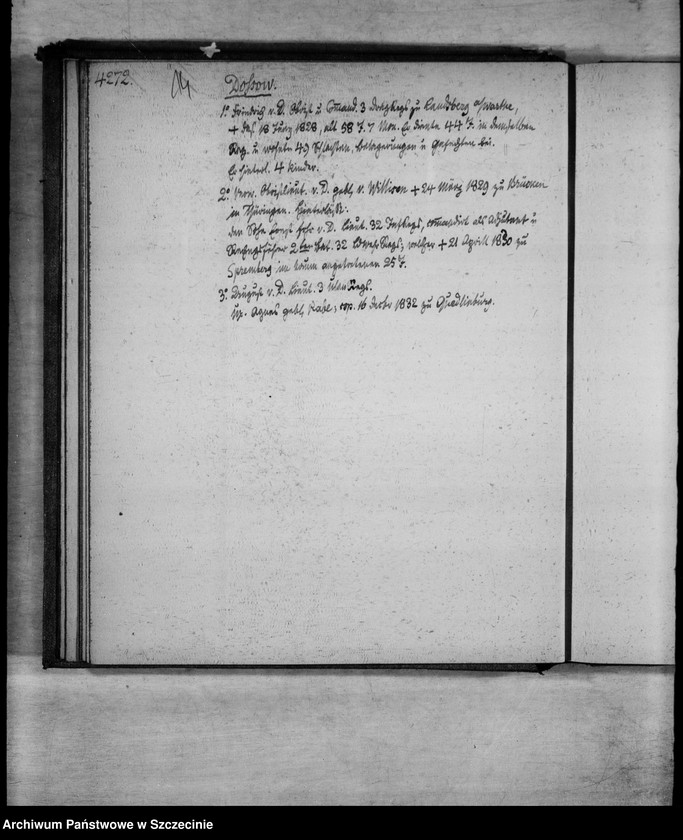 4272.
Dossow.
1° Friedrich v. D. Obrist u Command. 3 Drag Regts zu Landsberg a/Warthe,
+ das. 18 1828, alt 58 J. 7 Mon. Er diente 44 J. in demselben
Reg. u wohnte 49 Schlachten, Belagerungen u Gefechten bei.
Er hinterl. 4 Kinder.
2° Verw. Obristlieut. v. D. geb. v. + 24 März 1829 zu Brücken
in Thüringen. Hinterläßt:
den Sohn v. D. Lieut. 32 Inf Regts, commandirt als Adjutant u
Rechnungsführer 2ten Bat. 32 Ldwehr Regts; welcher + 21 April 1830 zu
Spremberg im kaum angetretenen 25 J.
3° August v. D. Lieut. 3 Ulan Regts.
Ux. Agnes geb. Rabe; cop. 16 Octbr 1832 zu Quedlinburg.
Archiwum Państwowe w Szczecinie